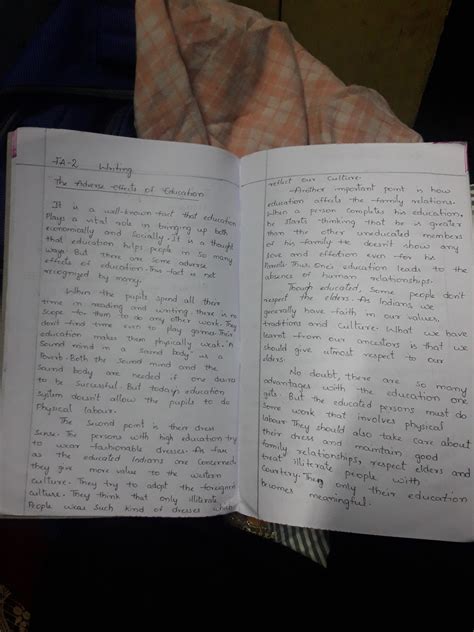 FA-2 Writing
The Adverse Effects of Education
It is a well-known fact that education
Plays a vital role in bringing up both
economically and socially. It is a thought
that education helps people in so many
ways. But there are some adverse
effects of education. This fact is not
recognized by many.
When the pupils spend all their
time in reading and writing, there is no
scope to them to do any other work. They
don't find time even to play games. Their
education makes them physically weak. "A
Sound mind in a sound body" is a
Proverb. Both the sound mind and the
Sound body are needed if one desires
to be successful. But today's education
system doesn't allow the pupils to do
Physical labour.
The second point is their dress
sense. The persons with high education try
to wear fashionable dresses. As far
as the educated Indians are concerned
they give more value to the western
culture. They try to adopt the foreigner
culture. They think that only illiterate
People wear such kind of dresses which
reflect our culture.
Another important point is how
education affects the family relations.
When a person completes his education,
he starts thinking that he is greater
than the other uneducated members
of his family. He doesn't show any
love and affection even for his
Parents. Thus one's education leads to the
absence of human relationships.
Though educated, some people don't
respect the elders. As Indians we
generally have faith in our values,
traditions and culture. What we have
learnt from our ancestors is that we
should give utmost respect to our
elders.
No doubt, there are so many
advantages with the education one
gets. But the educated persons must do
some work that involves physical
labour. They should also take care about
their dress and maintain good
family relationships, respect elders and
treat illiterate people with
Courtesy. Then only their education
becomes meaningful.